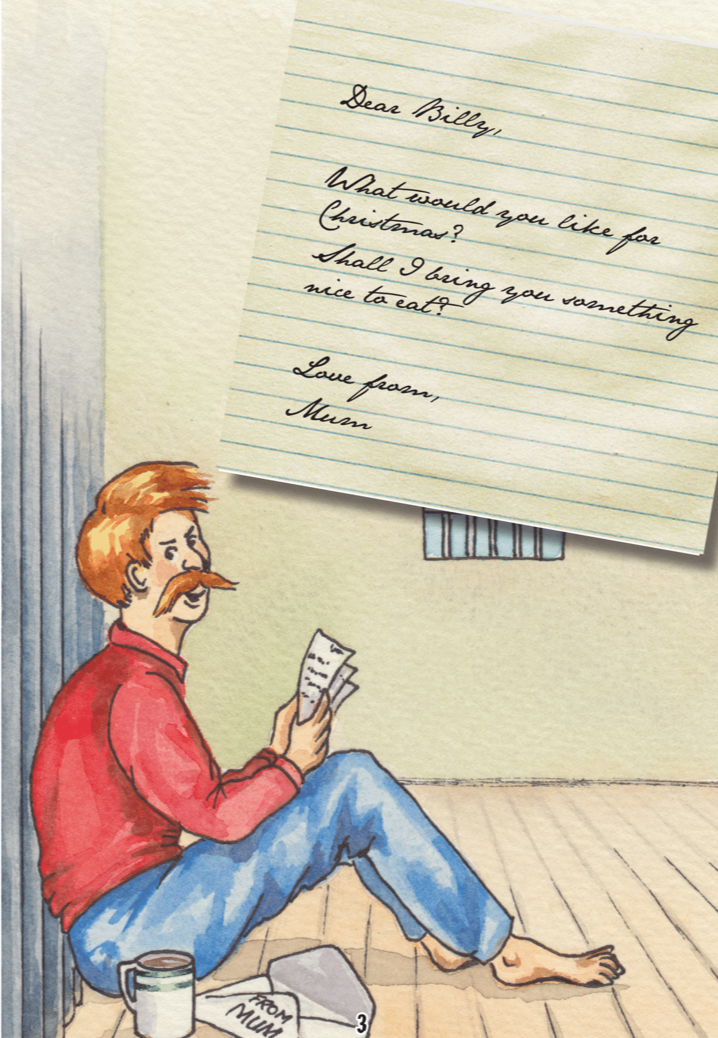 Dear Billy,
What would you like for
Christmas?
Shall I bring you something
nice to eat?
Love from,
Mum
FROM
MUM
3